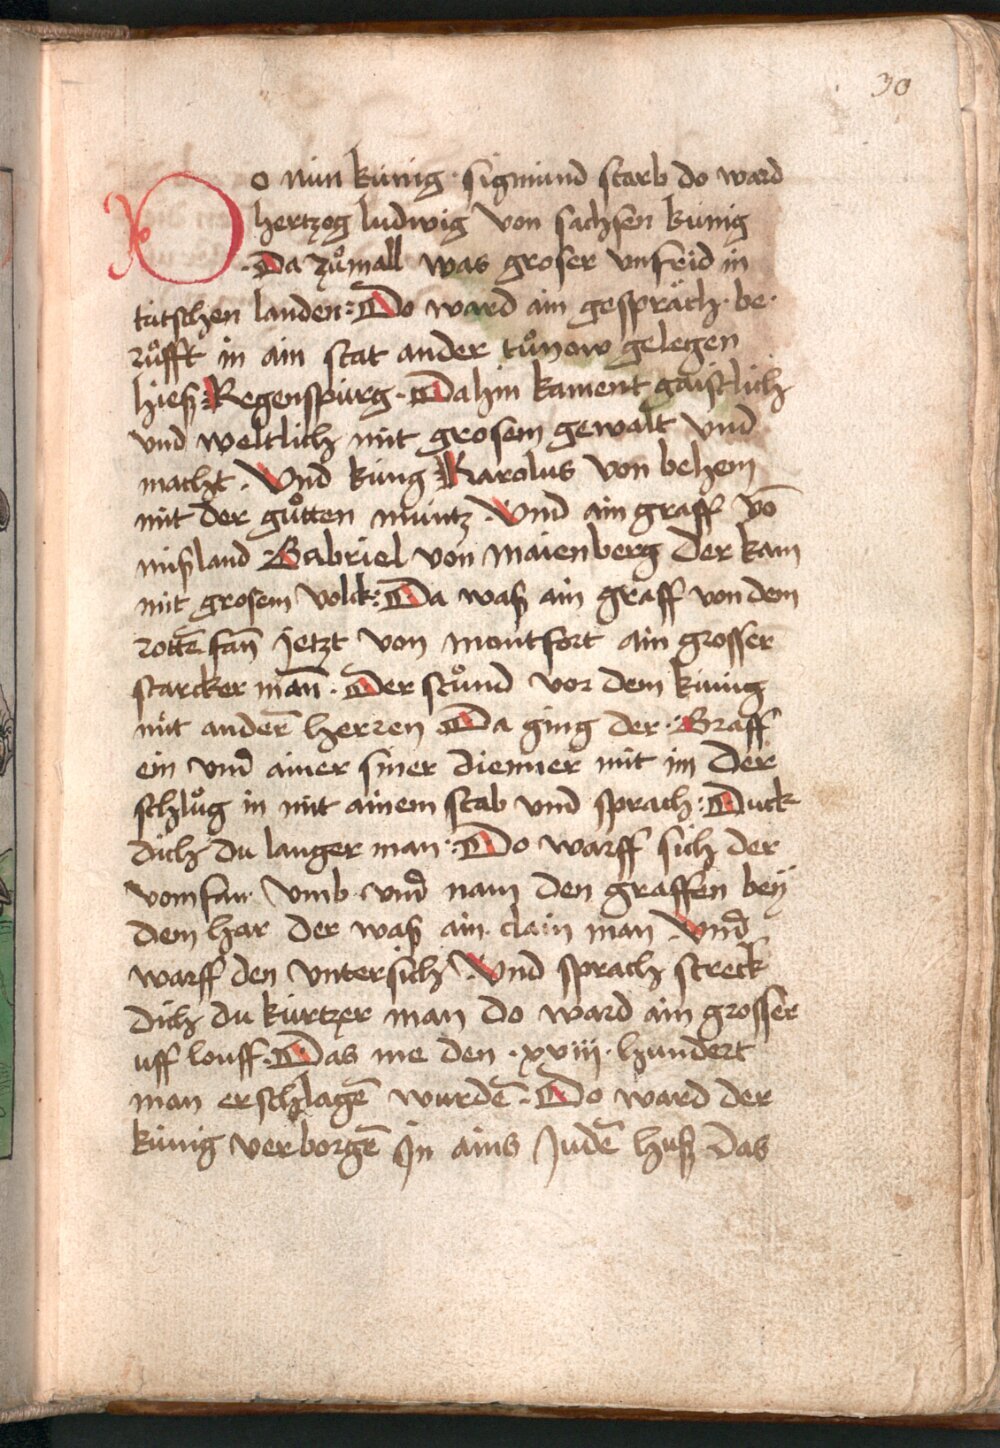 30
Do nun künig · sigmund starb do ward
hertzog ludwig von sachsen künig
· Da zuͦmall was groser vnfrid in
tütschen landen : Do ward ain gespräch · be ·
ruͦfft in ain stat an der tuͦnow gelegen
hieß Regenspurg · Dahin kament gaistlich
vnd weltlich mit grosem gewalt vnd
macht · Vnd küng Karolus von behem
mit der guͦtten müntz · Vnd ain graff vō
nüßland Gabriel von maienberg der kam
mit grosem volck : Da waß ain graff von dem
rottē fan̄ jetzt von montfort ain grosser
starcker man̄ · Der stuͦnd vor dem künig
mit anderē herren Da ging der · Graff
ein vnd ainer siner dienner mit im Der
schluͦg in mit ainem stab vnd sprach : Duck
dich du langer man · Do warff sich der
vom fan vmb · vnd nam den graffen beÿ
dem har der waß ain · clain man vnd
warff den vntersich · Vnd sprach streck
dich du kurtzer man do ward ain grosser
uff louff · Das me den · xviij · hundert
man erschlagē wurdē · Do ward der
künig verborgē In ains Judē huß das